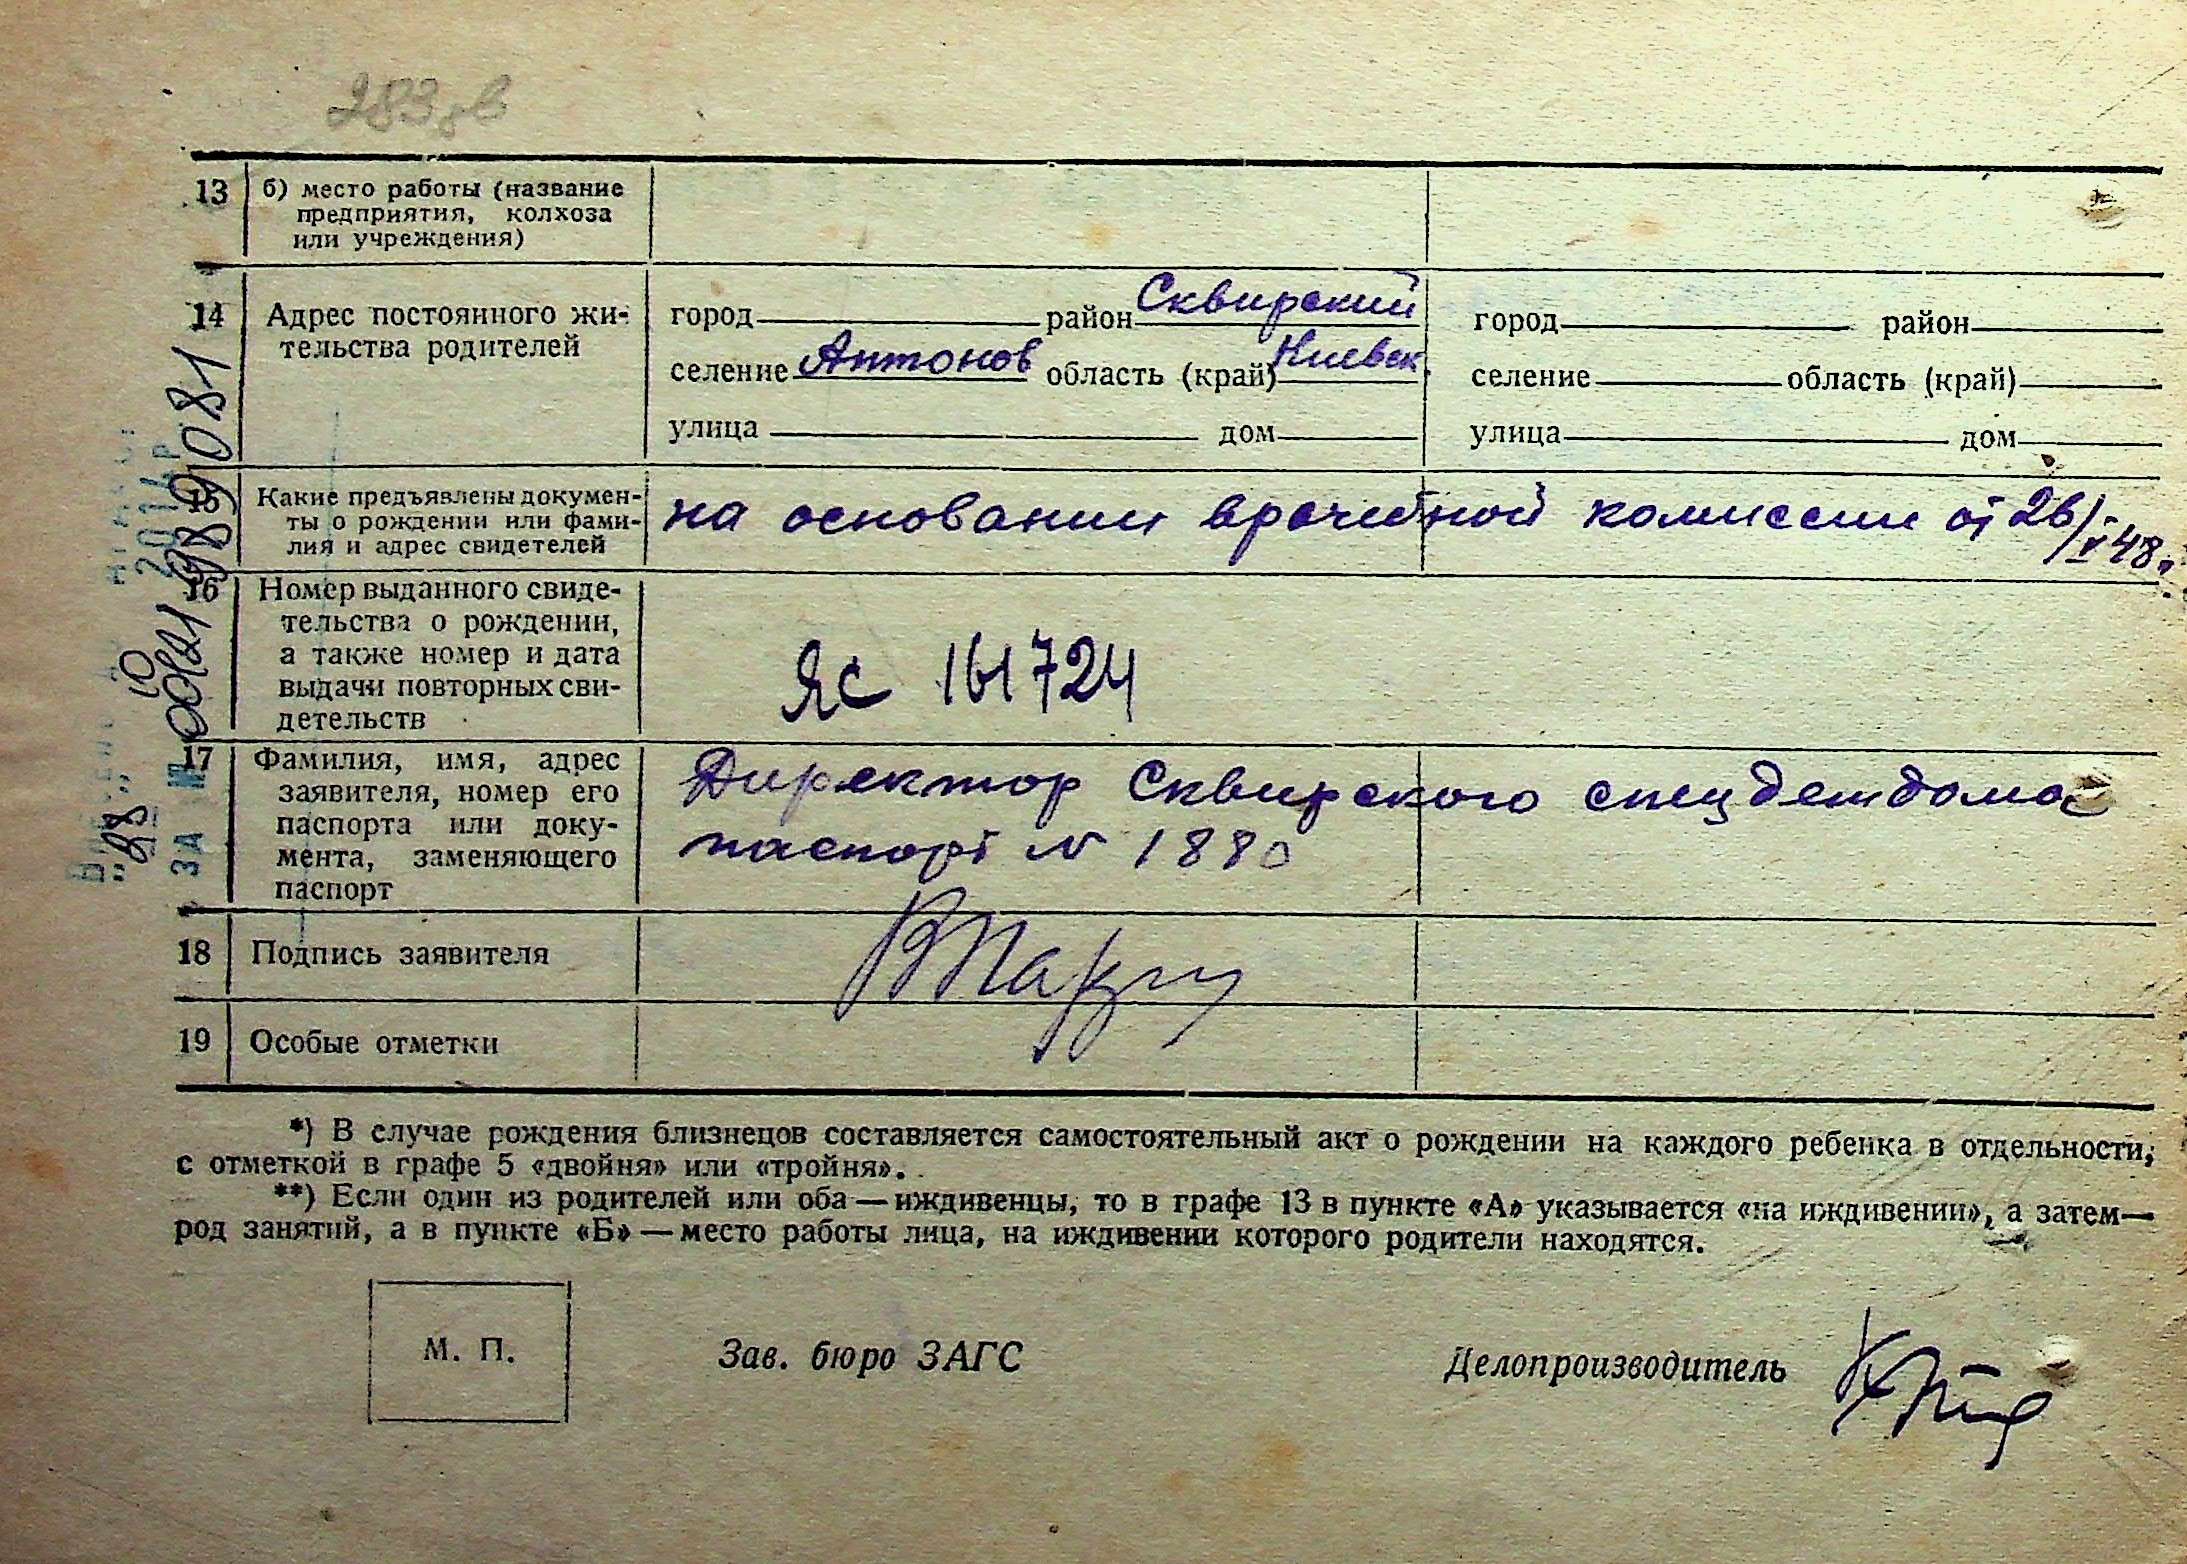 283
13 б) место работы (название
предприятия, колхоза
или учреждения)
14 Адрес постоянного жи-
тельства родителей
город район Сквирский
селение Антонов область (край) Киевск.
улица дом
город район
селение область (край)
улица дом
15 Какие предъявлены докумен-
ты о рождении или фами-
лия и адрес свидетелей
на основании врачебной комиссии от 26/V 48.
16 Номер выданного свиде-
тельства о рождении,
а также номер и дата
выдачи повторных сви-
детельств
ЯС 161724
17 Фамилия, имя, адрес
заявителя, номер его
паспорта или доку-
мента, заменяющего
паспорт
Директор Сквирского спецдетдома
паспорт N 1880
18 Подпись заявителя
19 Особые отметки
*) В случае рождения близнецов составляется самостоятельный акт о рождении на каждого ребенка в отдельности,
с отметкой в графе 5 «двойня» или «тройня».
**) Если один из родителей или оба — иждивенцы, то в графе 13 в пункте «А» указывается «на иждивении», а затем—
род занятий, а в пункте «Б» — место работы лица, на иждивении которого родители находятся.
М. П.
Зав. бюро ЗАГС
Делопроизводитель
ЗА №